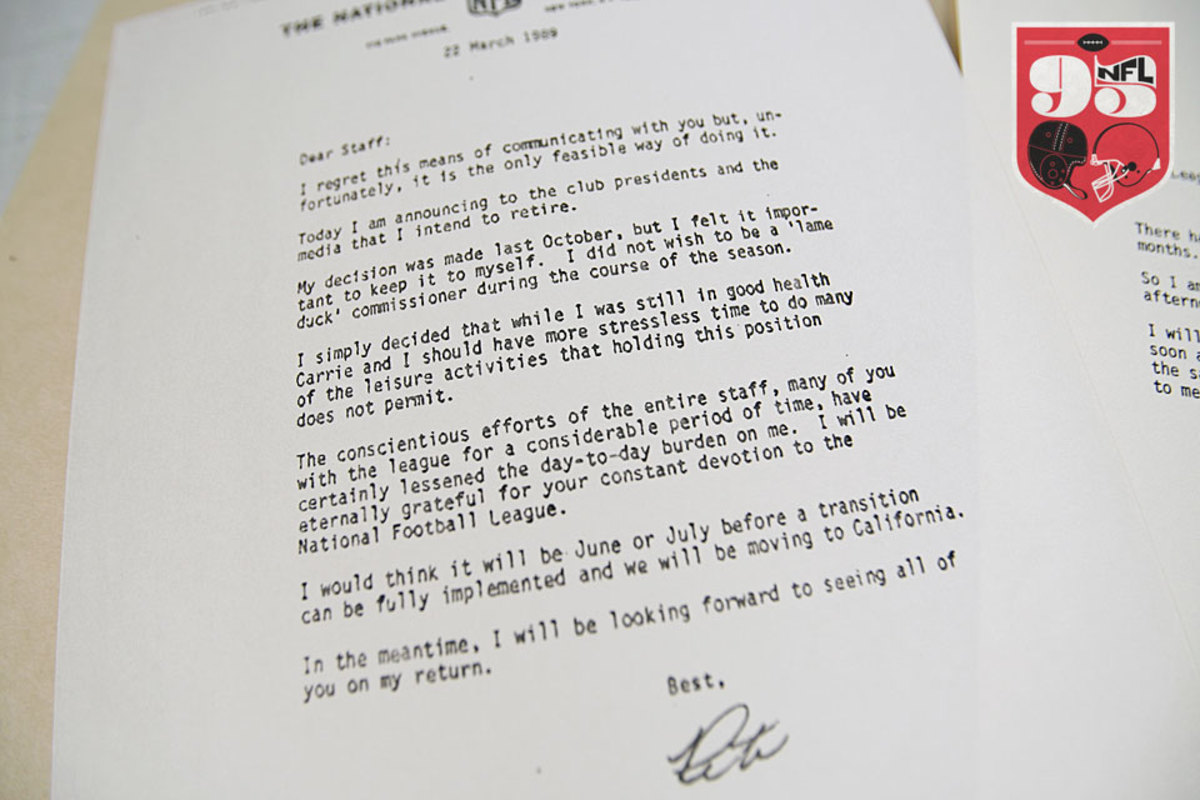 THE NATIONAL
NFL
22 March 1989
Dear Staff:
I regret this means of communicating with you but, un-
fortunately, it is the only feasible way of doing it.
Today I am announcing to the club presidents and the
media that I intend to retire.
My decision was made last October, but I felt it impor-
tant to keep it to myself. I did not wish to be a 'lame
duck' commissioner during the course of the season.
I simply decided that while I was still in good health
Carrie and I should have more stressless time to do many
of the leisure activities that holding this position
does not permit.
The conscientious efforts of the entire staff, many of you
with the league for a considerable period of time, have
certainly lessened the day-to-day burden on me. I will be
eternally grateful for your constant devotion to the
National Football League.
I would think it will be June or July before a transition
can be fully implemented and we will be moving to California.
In the meantime, I will be looking forward to seeing all of
you on my return.
Best,
Pete
95
NFL
There
months.
So I
I will
soon
the
to me